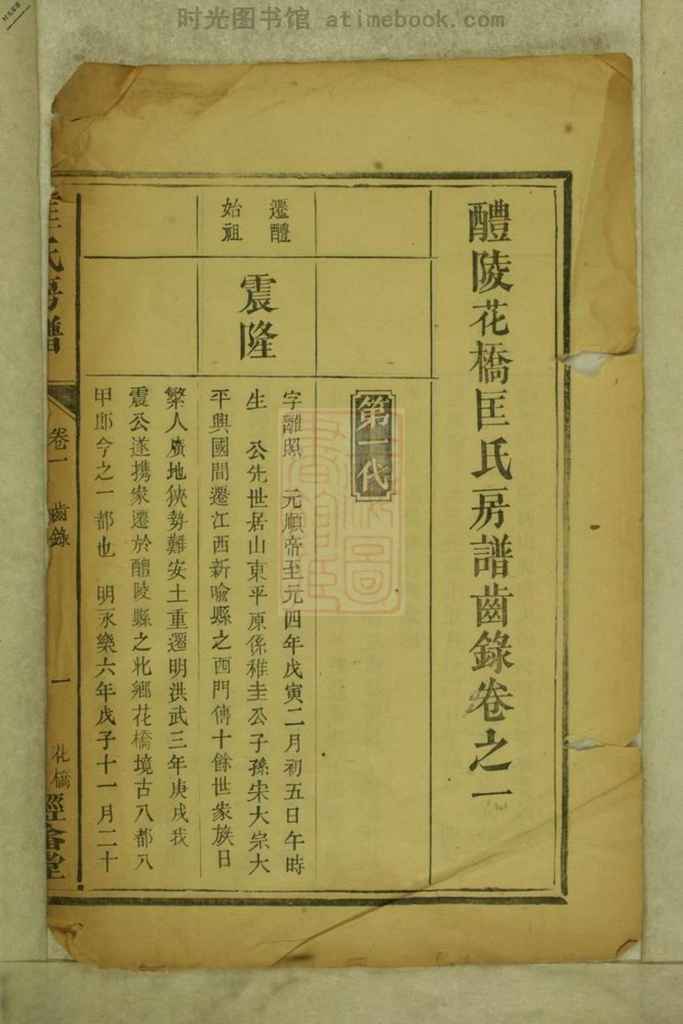 时光图书馆 atimebook.com
醴陵花橋匡氏房譜齒錄卷之一
第一代
遷醴
始祖
震隆
字離照 元順帝至元四年戊寅二月初五日午時
生 公先世居山東平原係稚圭公子孫宋太宗太
平興國間遷江西新喻縣之西門傳十餘世家族日
繁人廣地狹勢難安土重遷明洪武三年庚戌我
震公遂携家遷於醴陵縣之北鄉花橋境古八都八
甲即今之一都也 明永樂六年戊子十一月二十
匡氏房譜
卷一 齒錄
一
花橋